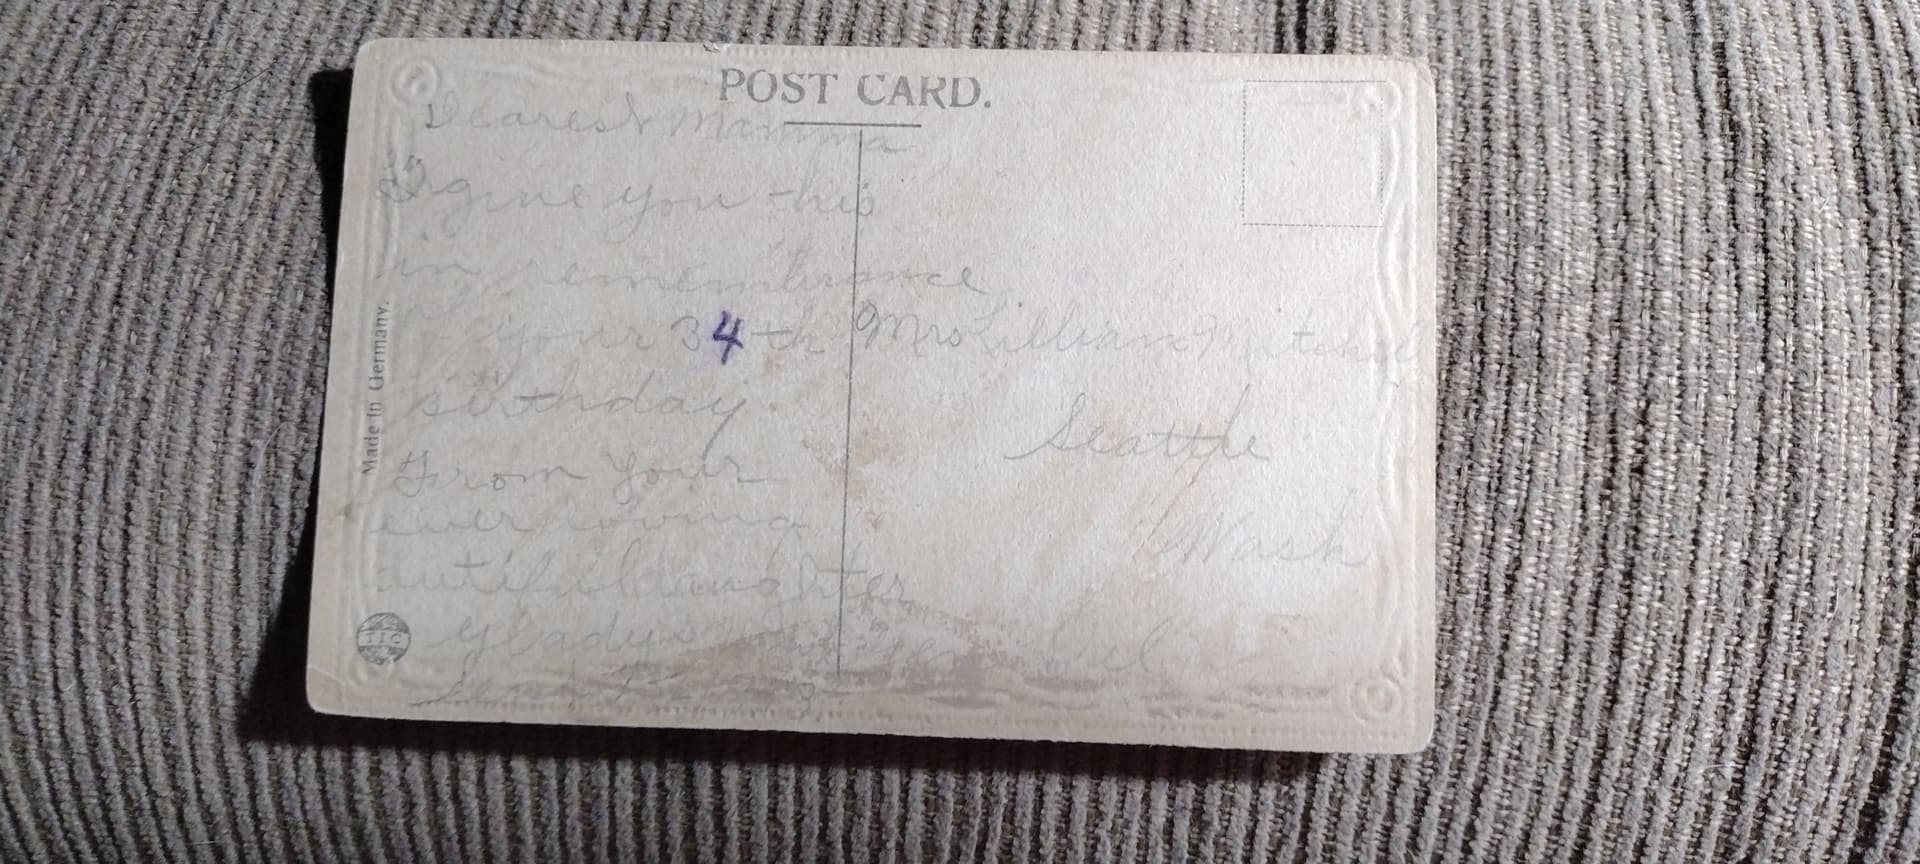 POST CARD.
Dearest Mamma
I give you this
in remembrance
your 34th
birthday.
From Your
ever loving
dutiful daughter
Gladys
Mrs Lillian Mitchell
Seattle
Wash
Made in Germany.